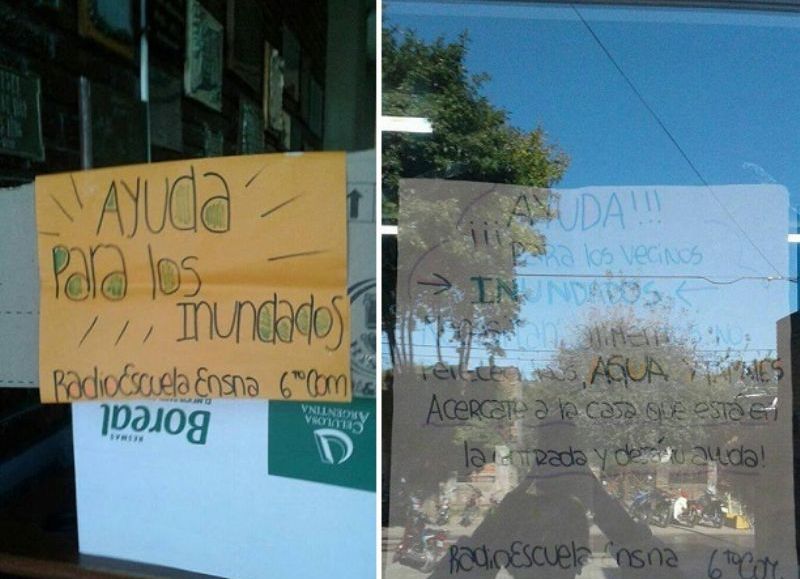 AYUDA
Para los
INUNDADOS
RadioEscuela Ensna 6to Com
RESMAS
Boreal
CELULOSA
ARGENTINA
¡¡¡AYUDA!!!
Para los vecinos
→ INUNDADOS ←
AGUA Y
ACERCATE a la casa que está en
la entrada y dejá tu ayuda!
RadioEscuela Ensna 6to Com